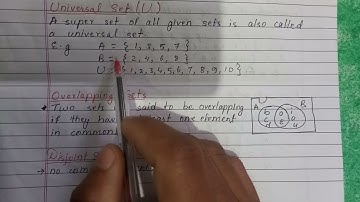 Universal Set (U)
A super set of all given sets is also called
a universal set
E.g A = { 1, 3, 5, 7 }
B = { 2, 4, 6, 8 }
U = { 1, 2, 3, 4, 5, 6, 7, 8, 9, 10 }
Overlapping Sets
Two sets said to be overlapping
if they least one element
in common
U
A B
Disjoint
no com